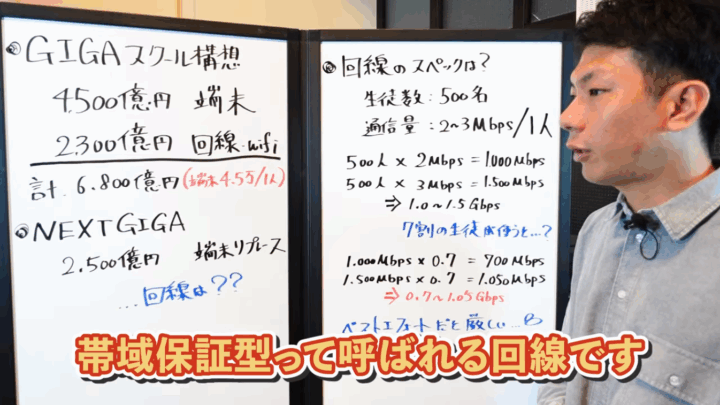 GIGAスクール構想
4.500億円 端末
2.300億円 回線・wifi
計 6.800億円(端末4.5万/1人)
NEXT GIGA
2.500億円 端末リプレース
...回線は??
回線のスペックは?
生徒数:500名
通信量:2~3Mbps/1人
500人×2Mbps=1000Mbps
500人×3Mbps=1.500Mbps
⇒1.0~1.5Gbps
7割の生徒が使うと...?
1.000Mbps×0.7=700Mbps
1.500Mbps×0.7=1.050Mbps
⇒0.7~1.05Gbps
ベストエフォートだと厳しい...
帯域保証型って呼ばれる回線です